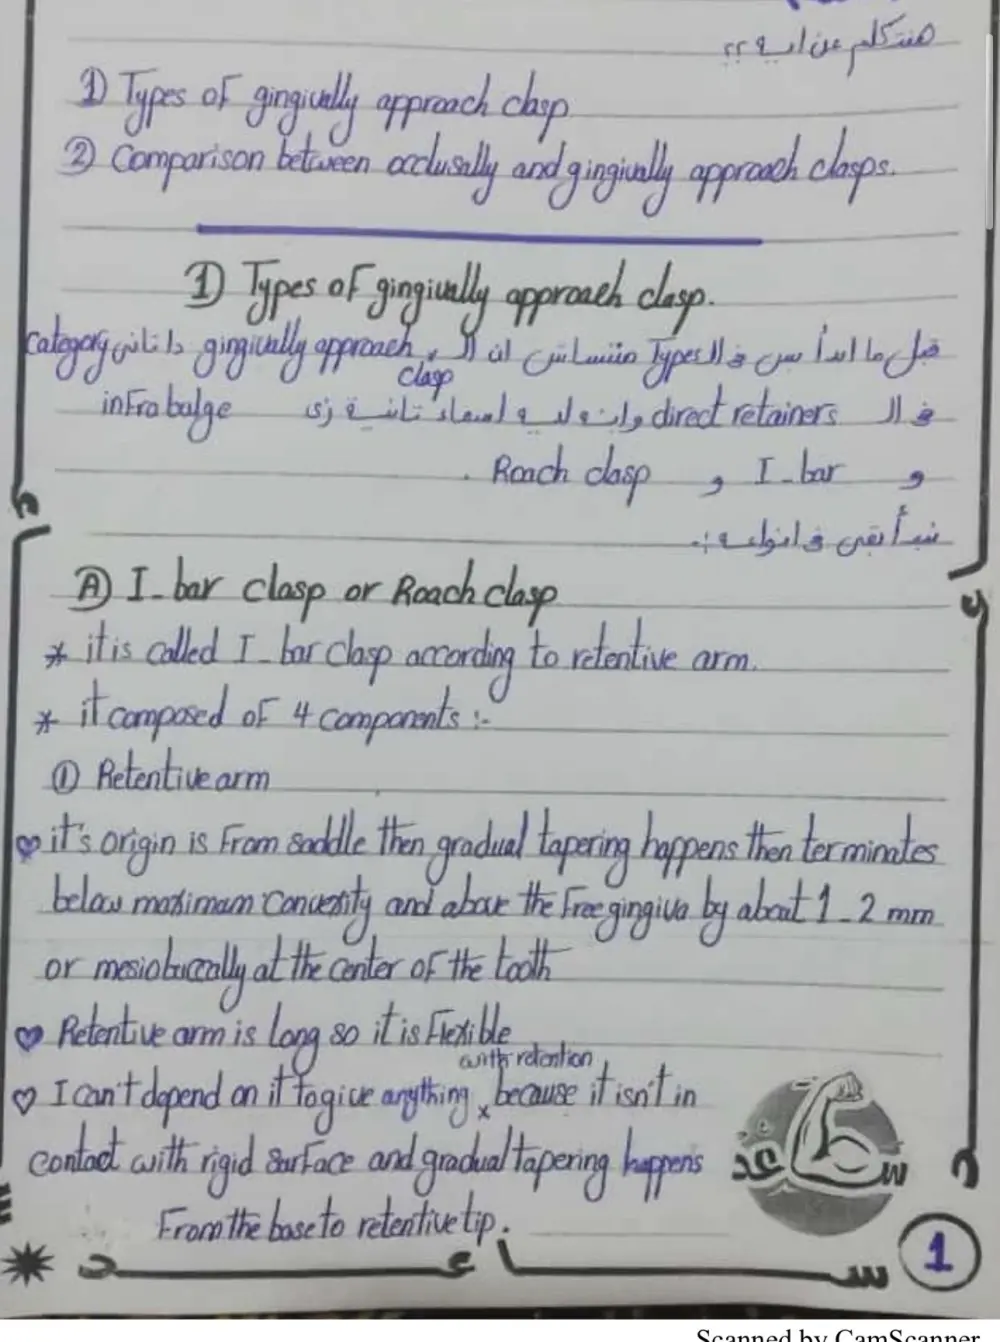 هنتكلم عن ايه ؟؟
1) Types of gingivally approach clasp
2) Comparison between occlusally and gingivally approach clasps.
1) Types of gingivally approach clasp.
قبل ما ابدأ بس في ال Types متنساش ان ال gingivally approach clasp دا تاني category
في ال direct retainers وانه ليه اسماء تانية زي infrabulge
و I-bar و Roach clasp .
نبدأ بقى في انواعه :.
A) I-bar clasp or Roach clasp
* it is called I-bar clasp according to retentive arm.
* it composed of 4 components :-
① Retentive arm
♡ it's origin is from saddle then gradual tapering happens then terminates
below maximam convexity and above the free gingiva by about 1-2 mm
or mesiobuccally at the center of the tooth
♡ Retentive arm is long so it is flexible
♡ I can't depend on it to give anything with retention because it isn't in
contact with rigid surface and gradual tapering happens
From the base to retentive tip.
1
Scanned by CamScanner